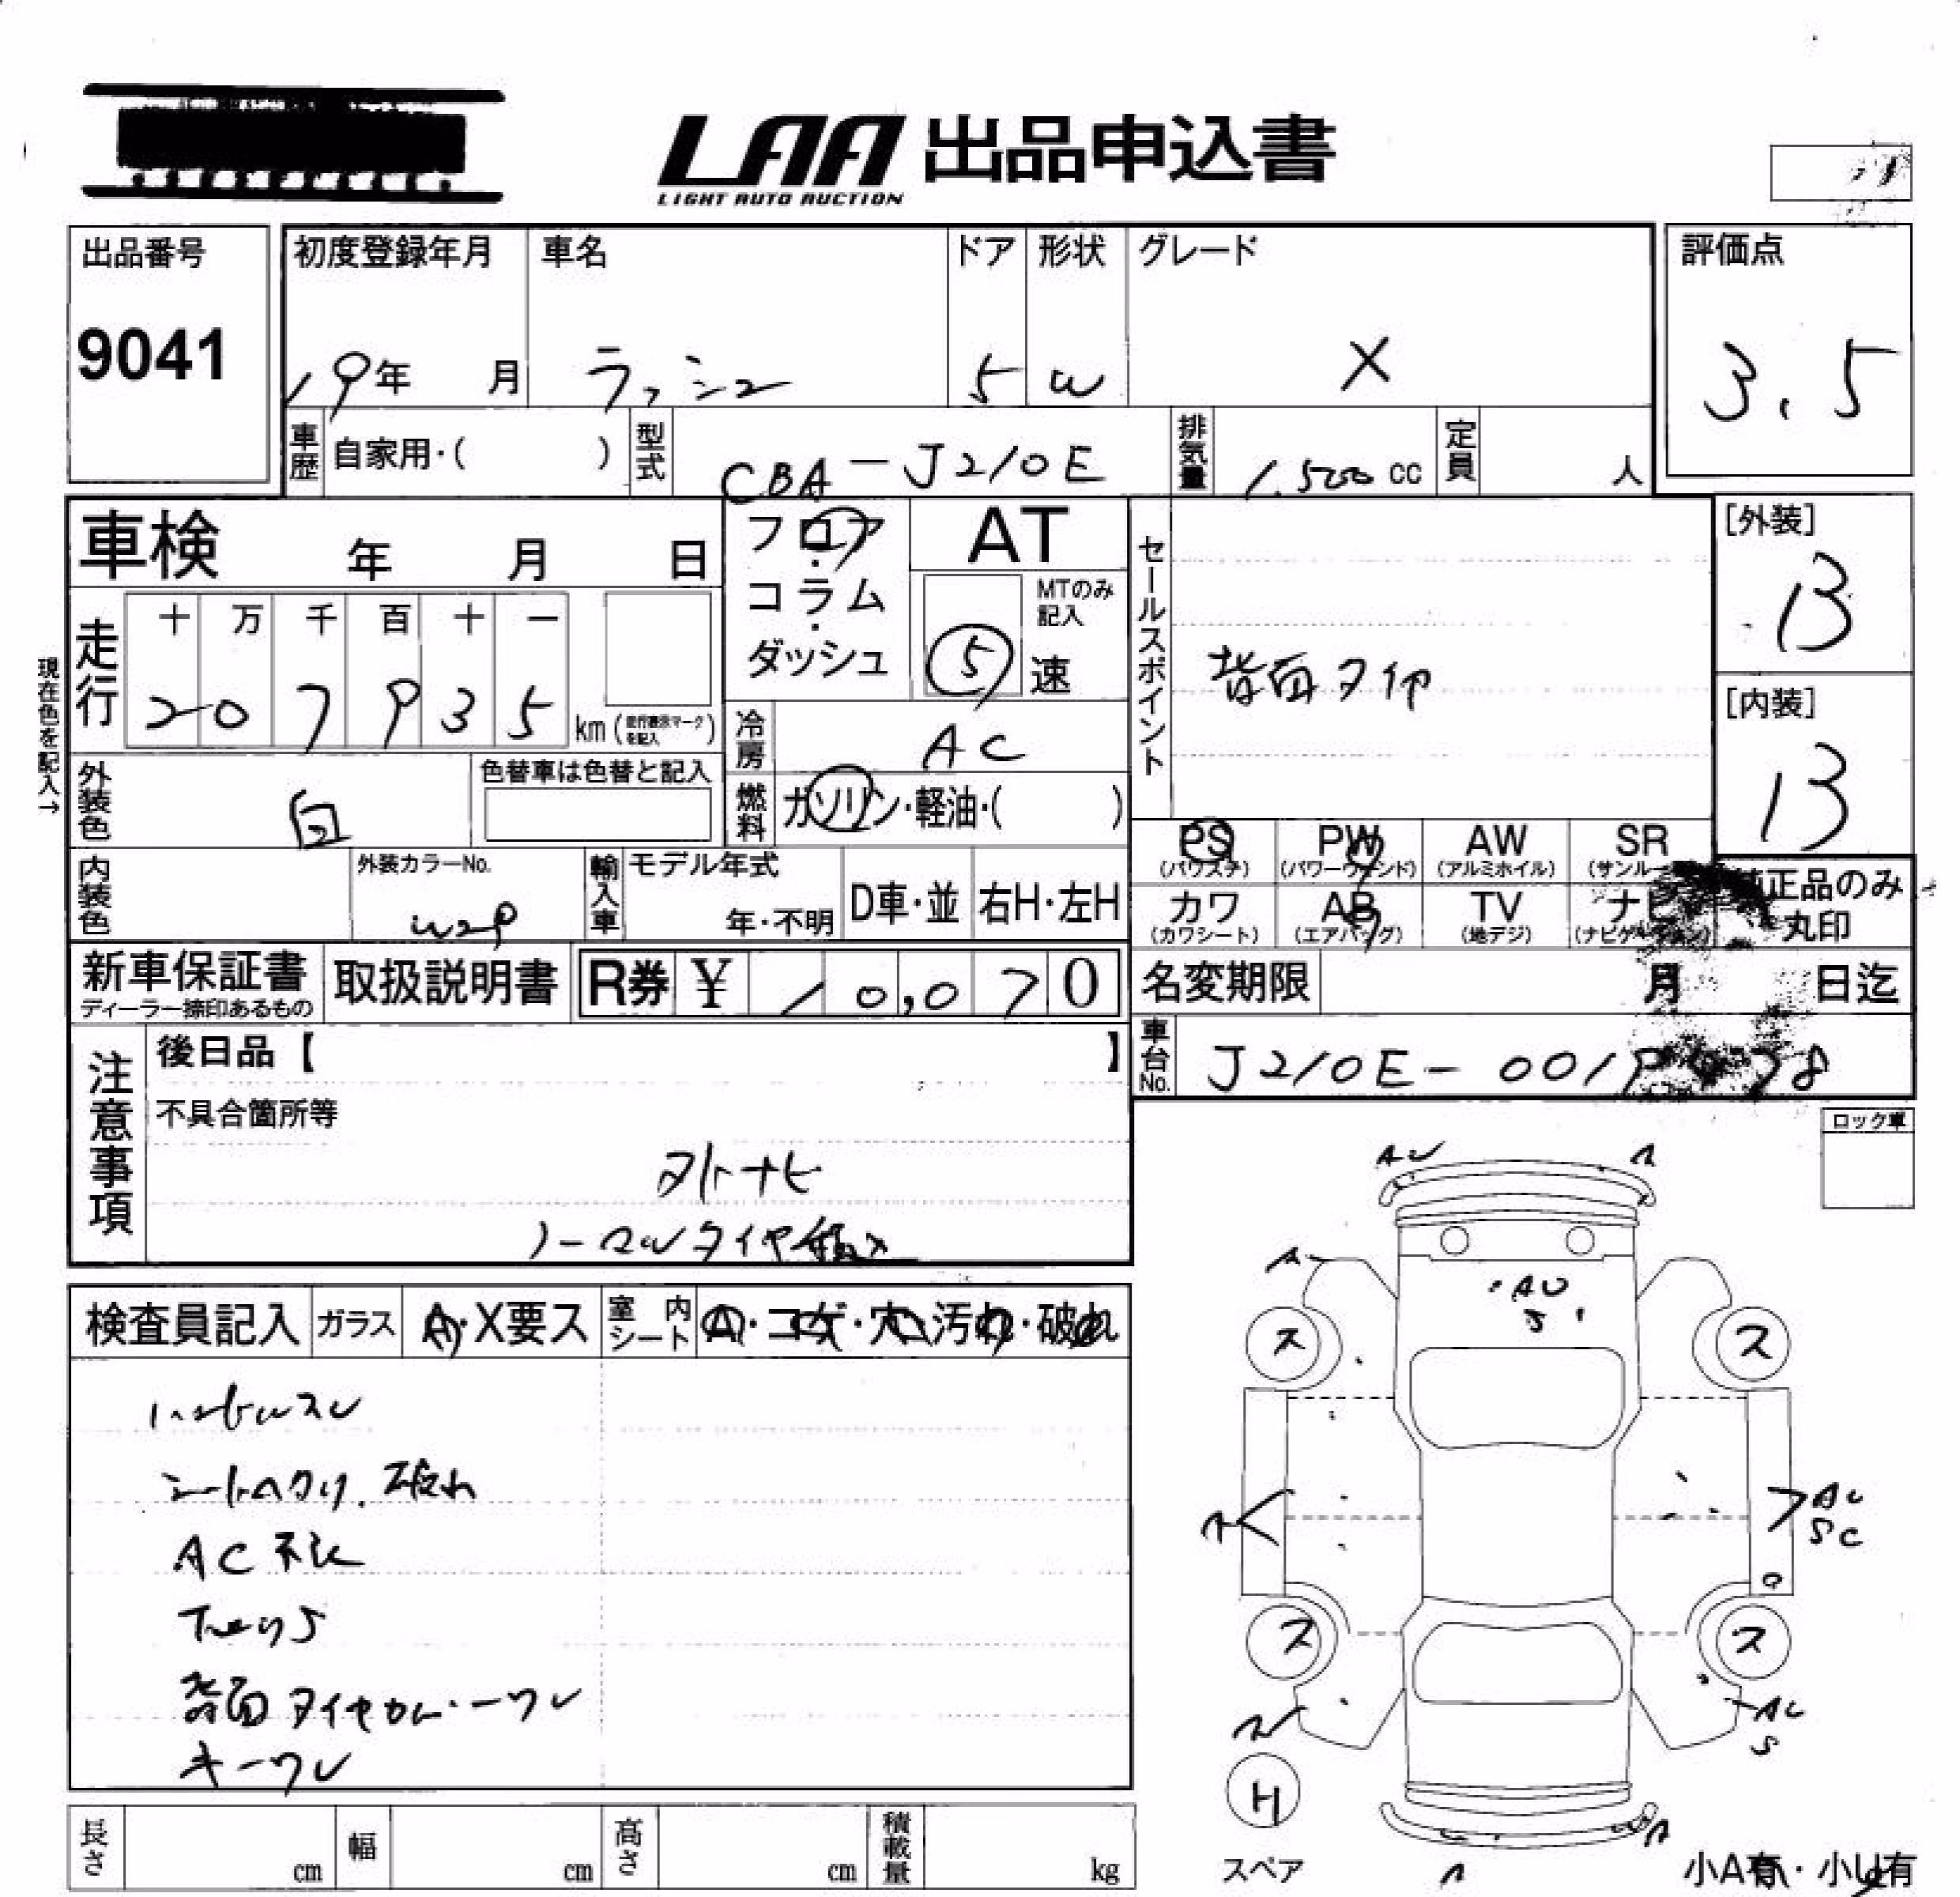 LAA 出品申込書
LIGHT AUTO AUCTION
出品番号
9041
初度登録年月
19年 月
車名
ラッシュ
ドア
5
形状
W
グレード
X
評価点
3.5
車歴 自家用・( )
型式 CBA-J210E
排気量 1,500 cc
定員 人
車検 年 月 日
フロア・コラム・ダッシュ
AT
MTのみ記入
5 速
セールスポイント
背面タイヤ
[外装]
B
[内装]
B
現在色を記入→
走行
十 万 千 百 十 一
2 0 7 9 3 5 km (走行表示マークを記入)
冷房 AC
外装色 白
色替車は色替と記入
燃料 ガソリン・軽油・( )
PS (パワステ)
PW (パワーウィンド)
AW (アルミホイル)
SR
内装色
外装カラーNo.
W29
輸入車
モデル年式
年・不明
D車・並
右H・左H
カワ (カワシート)
AB (エアバッグ)
TV (地デジ)
純正品のみ丸印
新車保証書
ディーラー捺印あるもの
取扱説明書
R券 ¥ 10,070
名変期限 月 日迄
車台No. J210E-001
注意事項
後日品【 】
不具合箇所等
外ナビ
ノーマルタイヤ積込
ロック車
検査員記入
ガラス A・X要ス
室内シート A・コゲ・穴・汚れ・破れ
ハンドルスレ
シートヘタリ、破れ
AC不
下回りS
背面タイヤカバーワレ
キーワレ
AU
A
A
AU
S
ス
ス
A
AU
SC
ス
ス
AU
S
H
スペア
A
A
小A有・小U有
長さ cm
幅 cm
高さ cm
積載量 kg